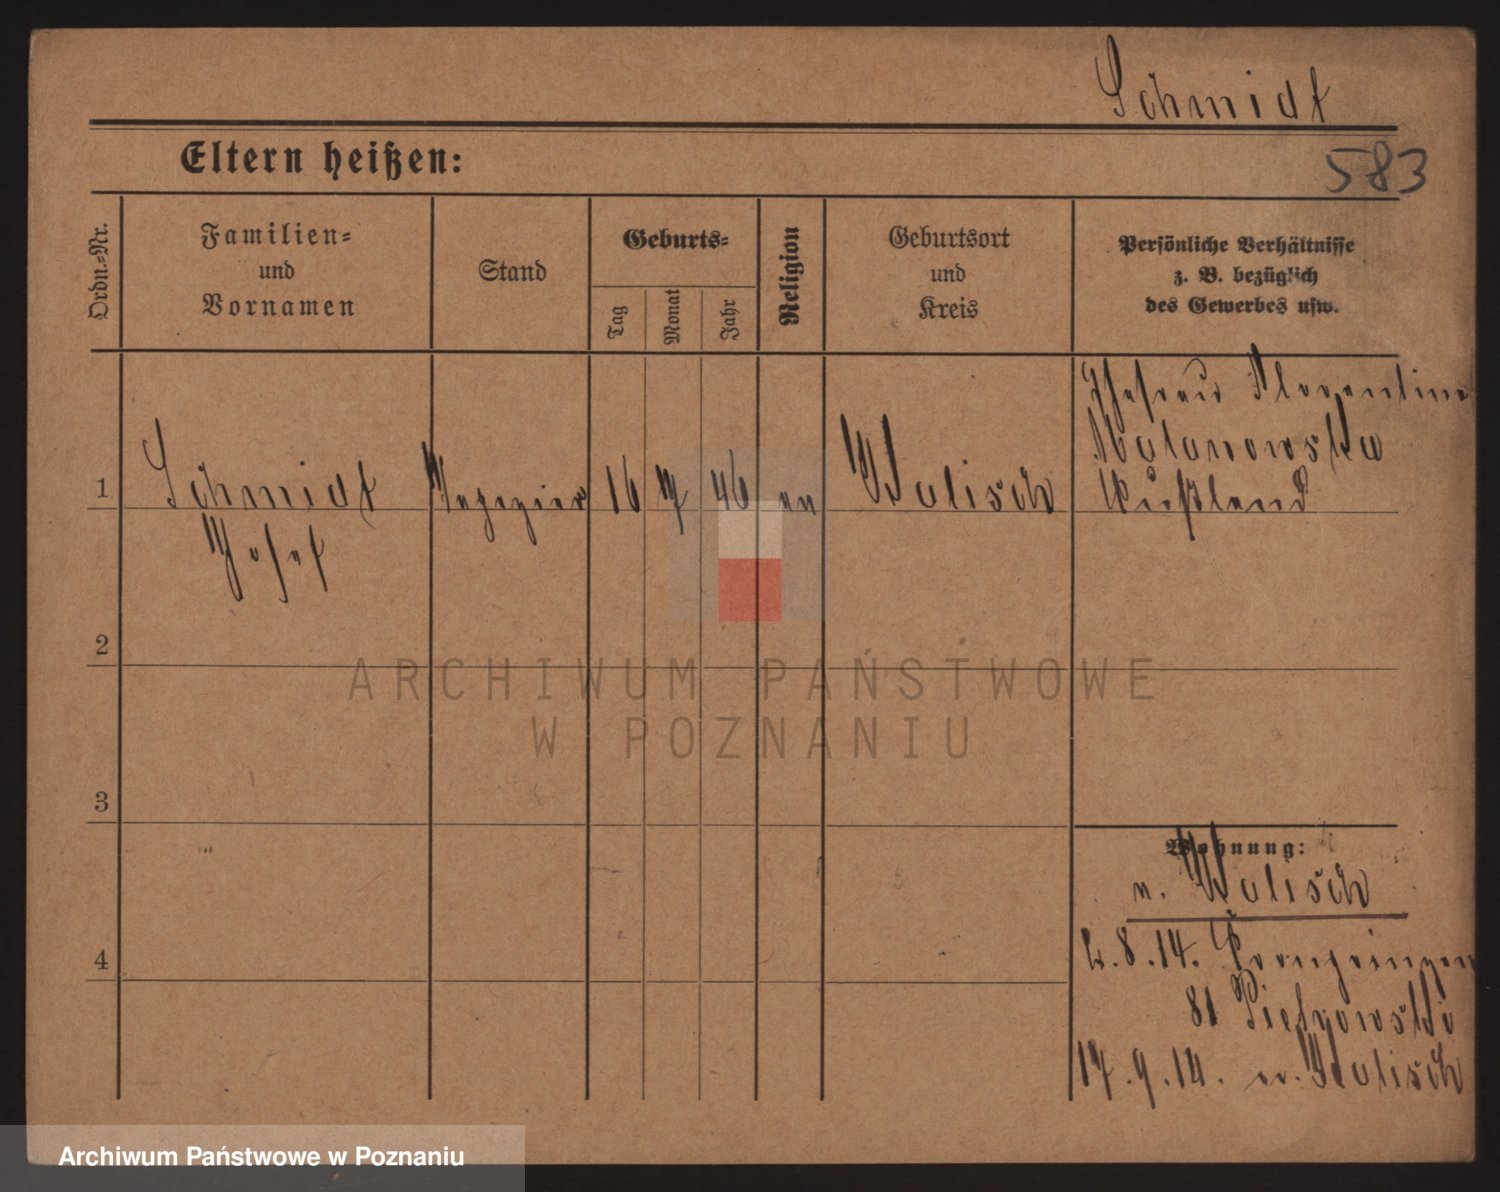 Schmidt
Eltern heißen:
583
Ordn.-Nr.
Familien-
und
Vornamen
Stand
Geburts-
Tag
Monat
Jahr
Religion
Geburtsort
und
Kreis
Persönliche Verhältnisse
z. B. bezüglich
des Gewerbes usw.
1
Schmidt
Josef
16
46
Kalisch
Ehefrau Florentine
Rußland
2
3
4
Wohnung:
n. Kalisch
2.8.14. Kronprinzen
81 Pietrowski
17.9.14. n. Kalisch
ARCHIWUM PAŃSTWOWE
W POZNANIU
Archiwum Państwowe w Poznaniu